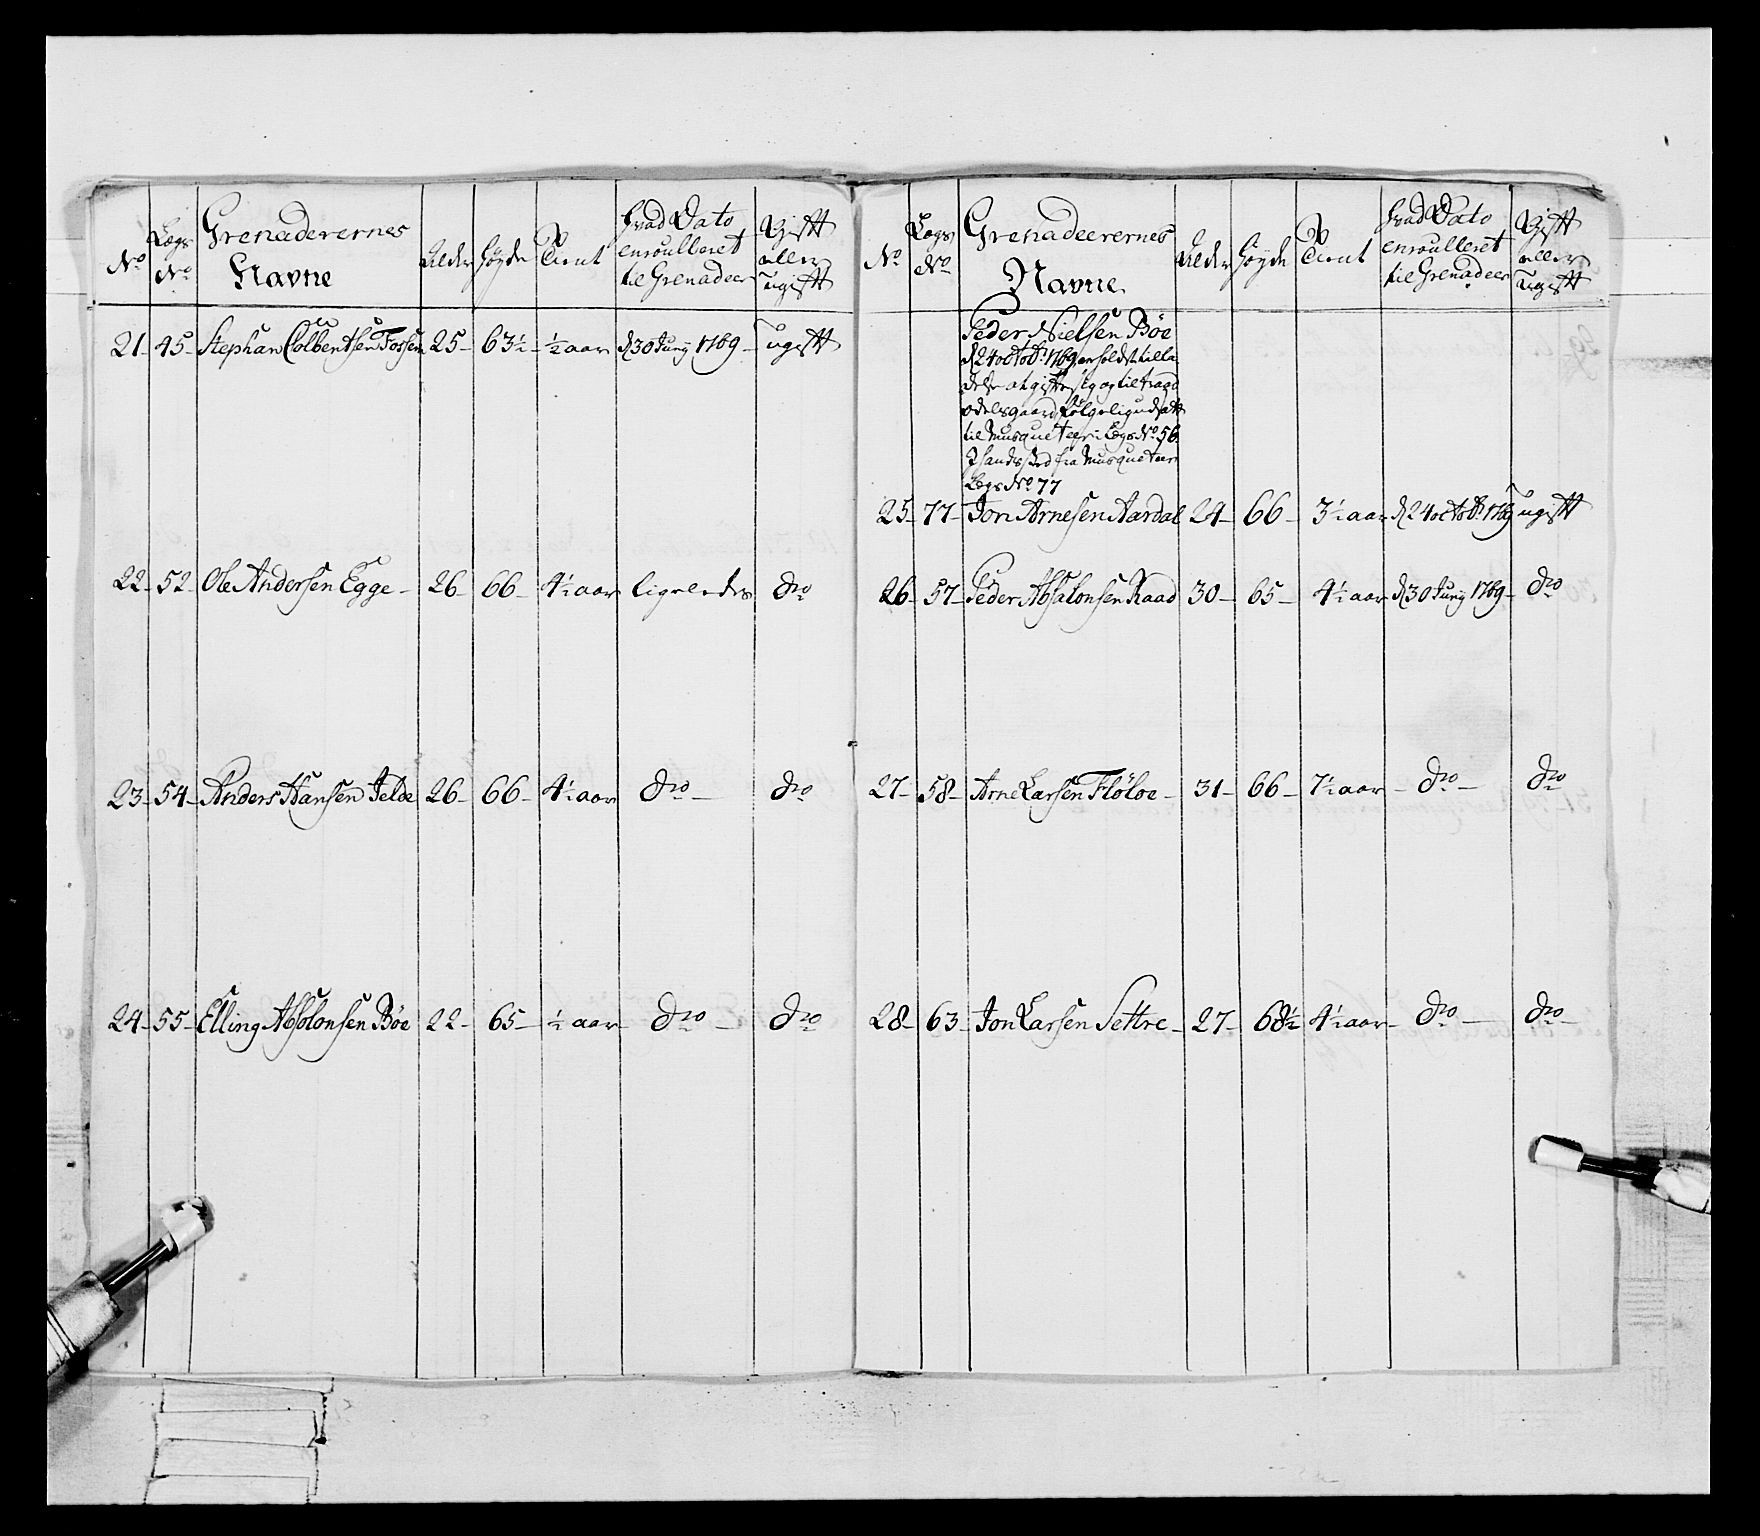 No Legs No Grenaderernes Navne Alder Høyde Tient hvad Dato enroulleret til Grenadeer Gift eller Ugift
21 45 Stephan Colbentsen Fossen 25 63½ ½ aar d 30 Juny 1769 ugift
22 52 Ole Andersen Egge 26 66 4½ aar ligeledes dro
23 54 Anders Hansen Jelde 26 66 4½ aar dro dro
24 55 Elling Absolonsen Bøe 22 65 ½ aar dro dro
No Legs No Grenadeerernes Navne Alder Høyde Tient hvad Dato enroulleret til Grenadeer Gift eller Ugift
Peder Nielsen Bøe
d 24 octobr 1769 erholdt tilla
delse at gifte sig og tiltraad
odelsgaard følgelig udsatt
til Musqueteer i Legs No 56
I hands sted fra Musqueteer
Legs No 77
25 77 Jon Arnesen Aardal 24 66 3½ aar d 24 octobr 1769 ugift
26 57 Peder Absalonsen Raad 30 65 4½ aar d 30 Juny 1769 dro
27 58 Arne Larsen Fløloe 31 66 7½ aar dro dro
28 63 Jon Larsen Settre 27 68½ 4½ aar dro dro